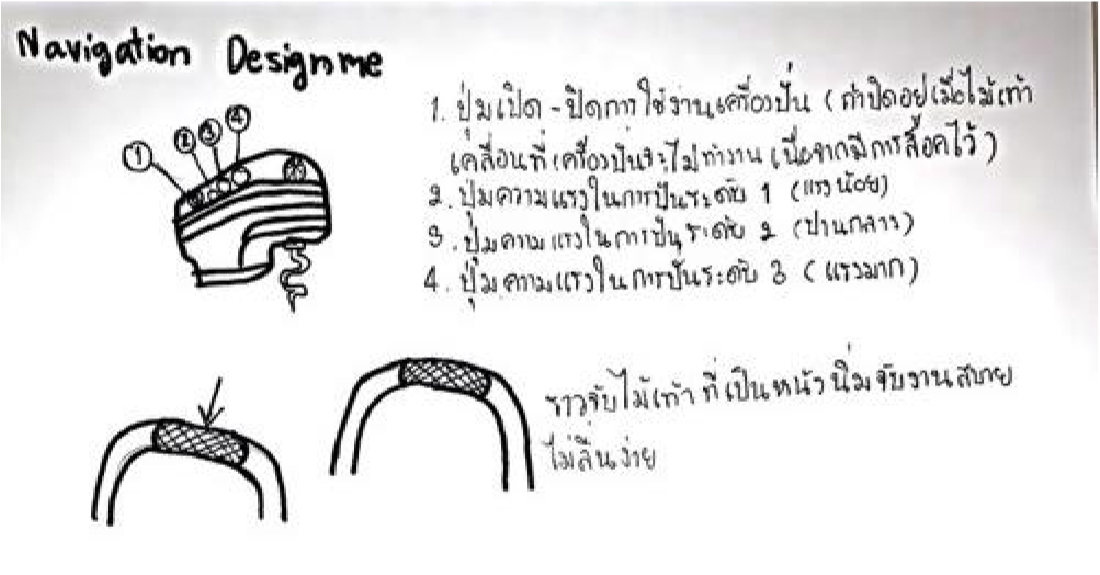 Navigation Designme
1 2 3 4
1. ปุ่มเปิด - ปิดการใช้งานเครื่องปั่น (ถ้าปิดอยู่เมื่อไม้เท้า
เคลื่อนที่เครื่องปั่นจะไม่ทำงาน เนื่องจากมีการล็อคไว้)
2. ปุ่มความแรงในการปั่นระดับ 1 (แรงน้อย)
3. ปุ่มความแรงในการปั่นระดับ 2 (ปานกลาง)
4. ปุ่มความแรงในการปั่นระดับ 3 (แรงมาก)
ราวจับไม้เท้า ที่เป็นหนังนิ่มจับงานสบาย
ไม่ลื่นง่าย